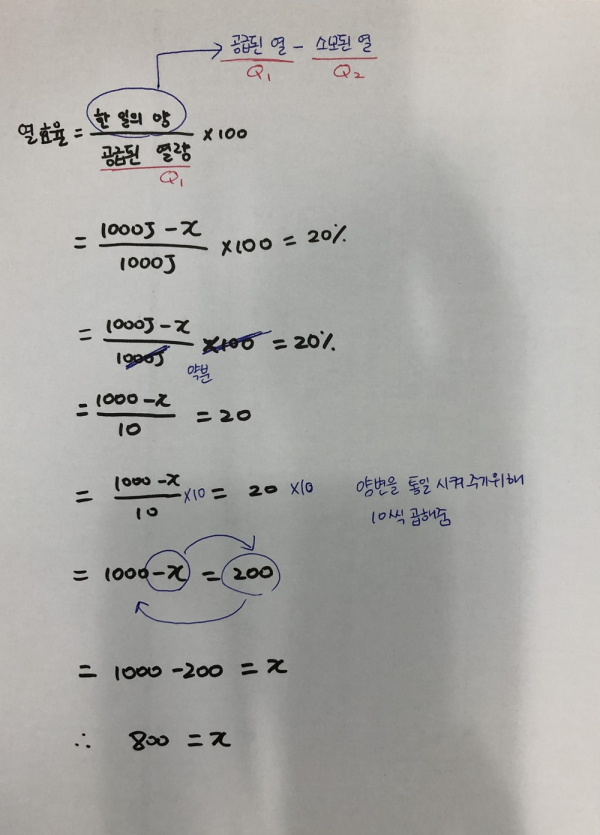 공급된 열 - 소모된 열
Q₁ Q₂
한 일의 양
열효율 = ―――― ×100
공급된 열량
Q₁
= (1000J - x)/1000J ×100 = 20%
= (1000J - x)/1000J ×100 = 20%
약분
= (1000 - x)/10 = 20
= (1000 - x)/10 ×10 = 20 ×10 양변을 통일 시켜주기위해
10씩 곱해줌
= 1000 - x = 200
= 1000 - 200 = x
∴ 800 = x